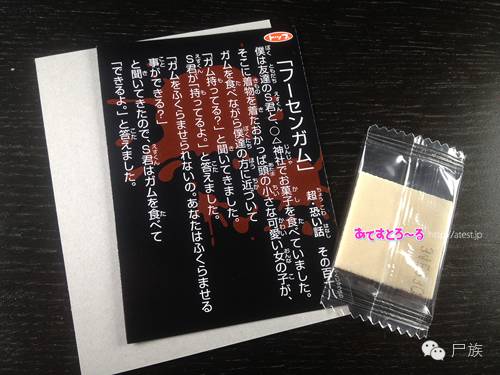 トップ
超・恐い話 その百十八
「フーセンガム」
僕は友達のS君と、○△神社でお菓子を食べていました。
そこに着物を着たおかっぱ頭の小さな可愛い女の子が、
ガムを食べながら僕達の方に近づいて
「ガム持ってる？」と聞いてきました。
S君が「持ってるよ。」と答えました。
「ガムをふくらませられないの。あなたはふくらませる
事ができる？」
と聞いてきたので、S君はガムを食べて
「できるよ。」と答えました。
あてすとろ〜る
http://atest.jp
尸族